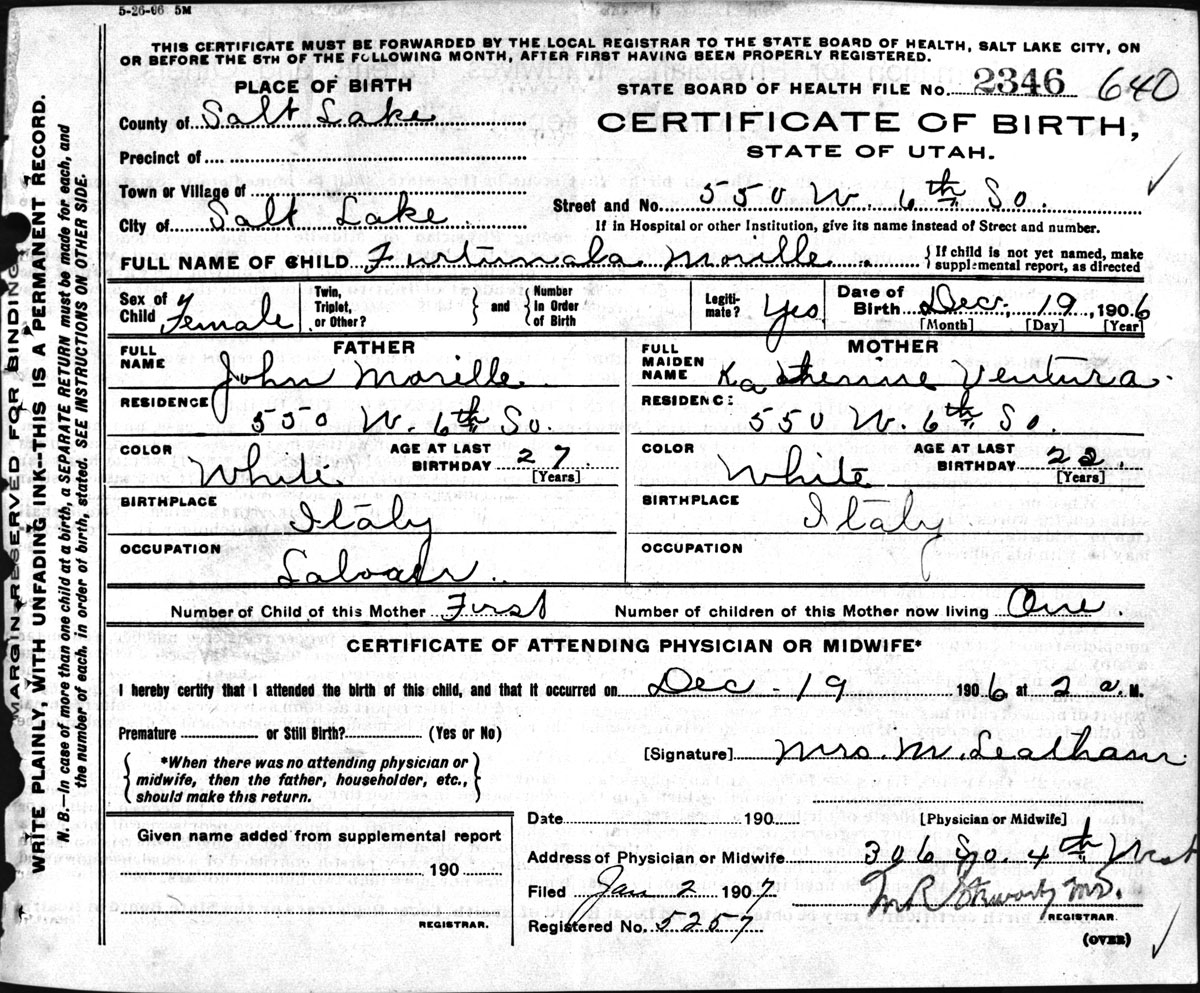 5-26-06 5M
THIS CERTIFICATE MUST BE FORWARDED BY THE LOCAL REGISTRAR TO THE STATE BOARD OF HEALTH, SALT LAKE CITY, ON
OR BEFORE THE 5TH OF THE FOLLOWING MONTH, AFTER FIRST HAVING BEEN PROPERLY REGISTERED.
PLACE OF BIRTH
STATE BOARD OF HEALTH FILE No. 2346 640
County of Salt Lake
CERTIFICATE OF BIRTH,
STATE OF UTAH.
Precinct of
Town or Village of
Street and No. 550 W. 6th So.
City of Salt Lake
If in Hospital or other Institution, give its name instead of Street and number.
FULL NAME OF CHILD Furtunala Morille
If child is not yet named, make
supplemental report, as directed
Sex of Child Female
Twin, Triplet, or Other? and Number in Order of Birth
Legiti-mate? Yes
Date of Birth Dec. 19, 1906
[Month] [Day] [Year]
FATHER
FULL NAME John Morille
RESIDENCE 550 W. 6th So.
COLOR White AGE AT LAST BIRTHDAY 27 [Years]
BIRTHPLACE Italy
OCCUPATION
MOTHER
FULL MAIDEN NAME Katherine Ventura
RESIDENCE: 550 W. 6th So.
COLOR White AGE AT LAST BIRTHDAY 22 [Years]
BIRTHPLACE Italy
OCCUPATION
Number of Child of this Mother First Number of children of this Mother now living One
CERTIFICATE OF ATTENDING PHYSICIAN OR MIDWIFE*
I hereby certify that I attended the birth of this child, and that it occurred on Dec - 19 1906 at 2 a. M.
Premature or Still Birth? (Yes or No)
[Signature] Mrs. M. Lealham
*When there was no attending physician or
midwife, then the father, householder, etc.,
should make this return.
Given name added from supplemental report
190
REGISTRAR.
Date 190 [Physician or Midwife]
Address of Physician or Midwife 306 So. 4th West
Filed Jan 2 1907 M R Stewart MD.
REGISTRAR.
Registered No. 5257
(OVER)
MARGIN RESERVED FOR BINDING
WRITE PLAINLY, WITH UNFADING INK--THIS IS A PERMANENT RECORD.
N. B.—In case of more than one child at a birth, a SEPARATE RETURN must be made for each, and
the number of each, in order of birth, stated. SEE INSTRUCTIONS ON OTHER SIDE.